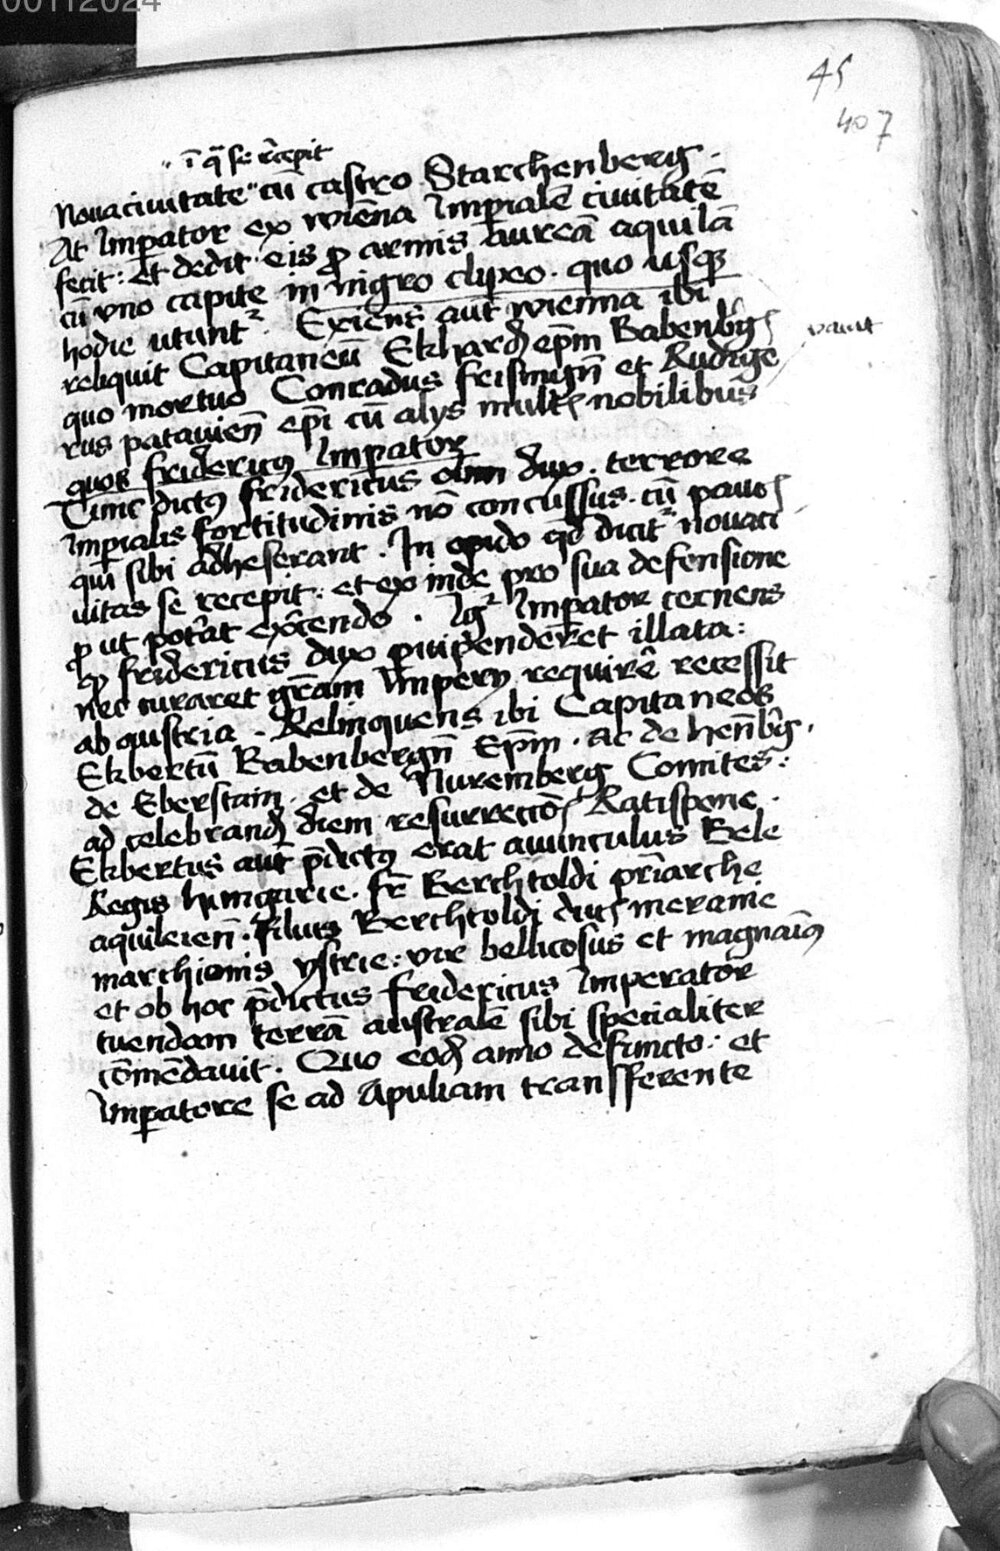 00112024
45
407
ī q̄ se recepit
Nouaciuitate cū castro Starchenberg.
At Imꝑator ex wiēna Imꝑialē ciuitatē
fecit: et dedit eis ꝓ armis aureā aquilā
cū vno capite in nigro clipeo. quo usqꝫ
hodie utunt᷑. Exiens aūt wienna ibi
reliquit Capitaneū Ekhard̄ ep̄m Babenbḡ
vacat
quo mortuo Conradus frisingn̄ et Rudige
rus patauien̄ ep̄i cū alijs mult̄ nobilibus
quos fridericꝰ Imꝑator
Tunc dictꝰ fridericus olim dux. terrore
Imꝑialis fortitudinis nō concussus. cū paucis
qui sibi adheserant. In opido qd̄ dicit᷑ nouaci
uitas se recepit: et ex inde pro sua defensione
ꝓ ut pot̄at ex̄cendo. Ig᷑ Imꝑator cernens
ꝙ fridericus dux ꝑuipenderet illata:
nec curaret gr̄am Imperij requirē recessit
ab austria. Relinquens ibi Capitaneos
Ekbertū Babenbergn̄ Ep̄m. ac de henb̄g.
de Eberstain. et de Nuremberg Comites:
ad celebrand̄ diem resurrectiōs Ratispone.
Ekbertus aūt p̄dictꝰ erat auunculus Bele
Regis hungarie. fr̄ Berchtoldi pr̄iarche
aquileien̄. filius Berchtoldi ducis meranie
marchionis ystrie: vir bellicosus et magnaīꝰ
et ob hoc p̄dictus fridericus Imperator
tuendam terrā australē sibi specialiter
cōmēdauit. Quo eod̄ anno defuncto: et
Imꝑatore se ad Apuliam transferente